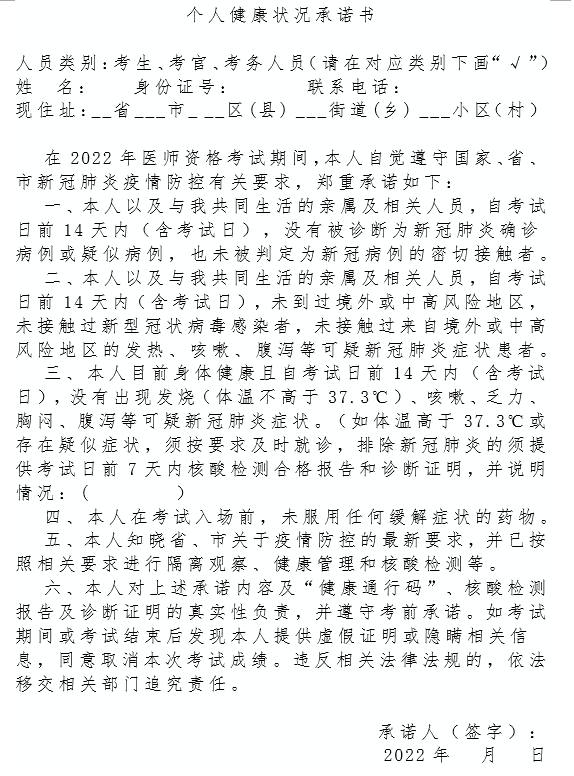 个人健康状况承诺书
人员类别:考生、考官、考务人员(请在对应类别下画“√”)
姓 名: 身份证号: 联系电话:
现住址:__省___市_ __区(县) ___街道(乡) ___小区(村)
在 2022 年医师资格考试期间,本人自觉遵守国家、省、
市新冠肺炎疫情防控有关要求, 郑重承诺如下:
一、本人以及与我共同生活的亲属及相关人员, 自考试
日前 14 天内 (含考试日) , 没有被诊断为新冠肺炎确诊
病例或疑似病例, 也未被判定为新冠病例的密切接触者。
二、本人以及与我共同生活的亲属及相关人员, 自考试
日前 14 天内 (含考试日) , 未到过境外或中高风险地区,
未接触过新型冠状病毒感染者, 未接触过来自境外或中高
风险地区的发热、咳嗽、腹泻等可疑新冠肺炎症状患者。
三、本人目前身体健康且自考试日前 14 天内 (含考试
日) , 没有出现发烧 (体温不高于 37.3℃) 、咳嗽、乏力、
胸闷、腹泻等可疑新冠肺炎症状。(如体温高于 37.3℃或
存在疑似症状, 须按要求及时就诊, 排除新冠肺炎的须提
供考试日前 7 天内核酸检测合格报告和诊断证明, 并说明
情况: ( )
四、本人在考试入场前, 未服用任何缓解症状的药物。
五、本人知晓省、市关于疫情防控的最新要求, 并已按
照相关要求进行隔离观察、健康管理和核酸检测等。
六、本人对上述承诺内容及“健康通行码”、核酸检测
报告及诊断证明的真实性负责, 并遵守考前承诺。如考试
期间或考试结束后发现本人提供虚假证明或隐瞒相关信
息, 同意取消本次考试成绩。违反相关法律法规的, 依法
移交相关部门追究责任。
承诺人 (签字) :
2022 年 月 日